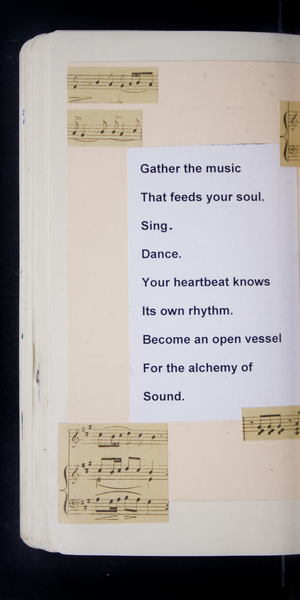 Gather the music
That feeds your soul.
Sing.
Dance.
Your heartbeat knows
Its own rhythm.
Become an open vessel
For the alchemy of
Sound.